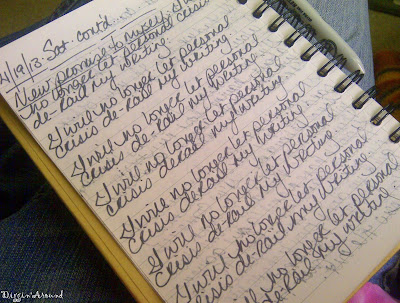 Sat. cont'd...
New promise to myself: I will
no longer let personal crisis
de-Rail my writing
I will no longer let personal
crisis de-Rail my writing
I will no longer let personal
crisis de-Rail my writing
I will no longer let personal
crisis de-Rail my writing
I will no longer let personal
crisis de-Rail my writing
I will no longer let personal
crisis de-Rail my writing
I will no longer let personal
crisis de-Rail my writing
no longer let personal
de-Rail my writing
Virgin'Around